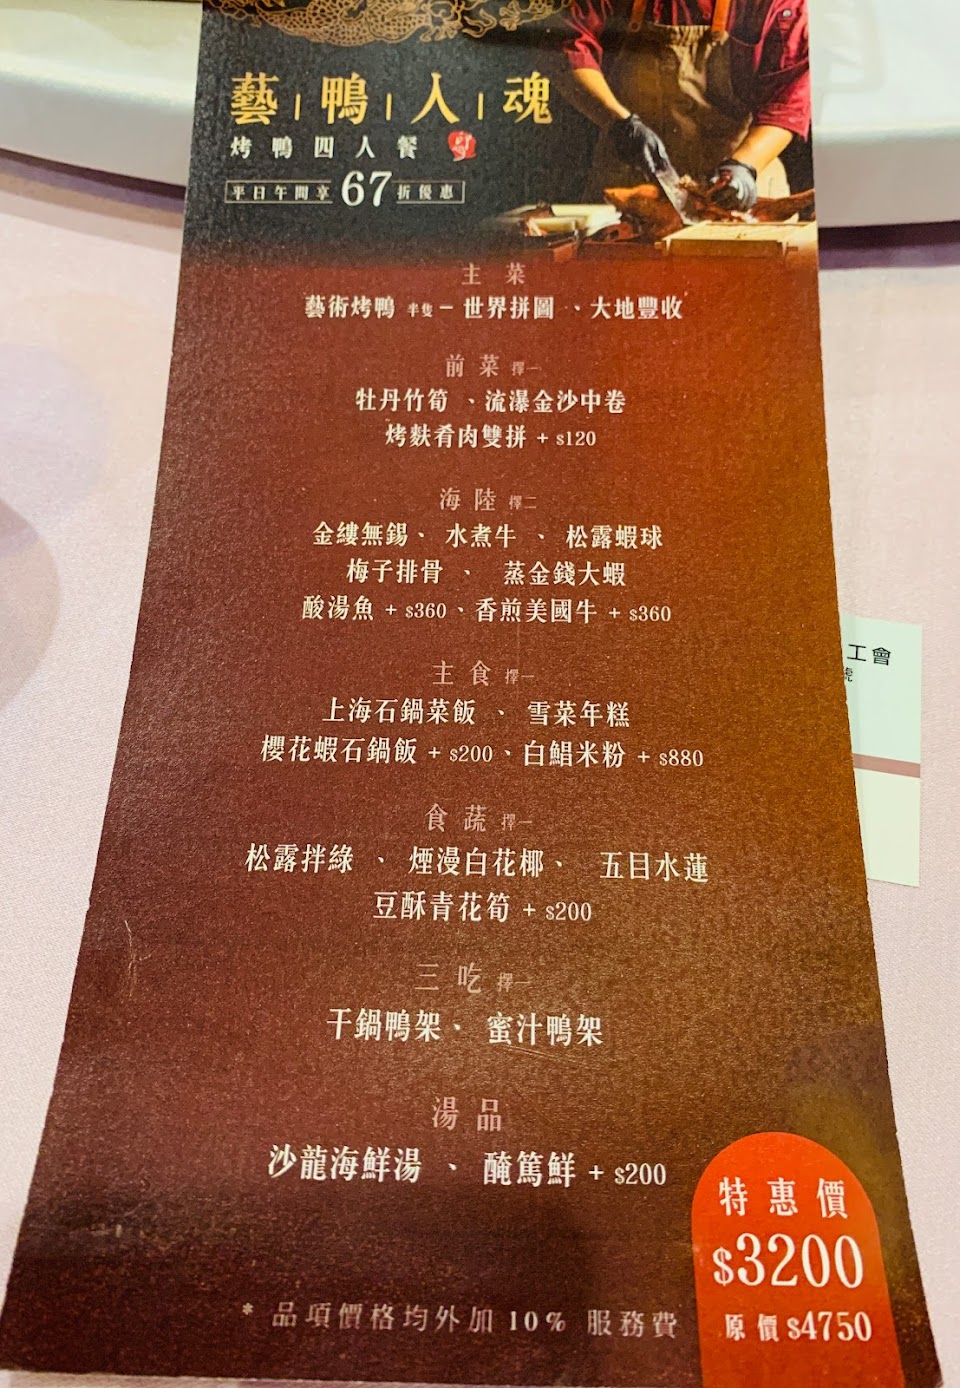 藝鴨人魂
烤鴨四人餐
平日午間享67折優惠
主菜
藝術烤鴨 半隻 – 世界拼圖、大地豐收
前菜 擇一
牡丹竹筍、流瀑金沙中卷
烤麩肴肉雙拼 + $120
海陸 擇二
金縷無錫、水煮牛、松露蝦球
梅子排骨、蒸金錢大蝦
酸湯魚 + $360、香煎美國牛 + $360
主食 擇一
上海石鍋菜飯、雪菜年糕
櫻花蝦石鍋飯 + $200、白鯧米粉 + $880
食蔬 擇一
松露拌綠、煙漫白花椰、五目水蓮
豆酥青花筍 + $200
三吃 擇一
干鍋鴨架、蜜汁鴨架
湯品
沙龍海鮮湯、醃篤鮮 + $200
特惠價
$3200
原價 $4750
* 品項價格均外加 10% 服務費
工會
號